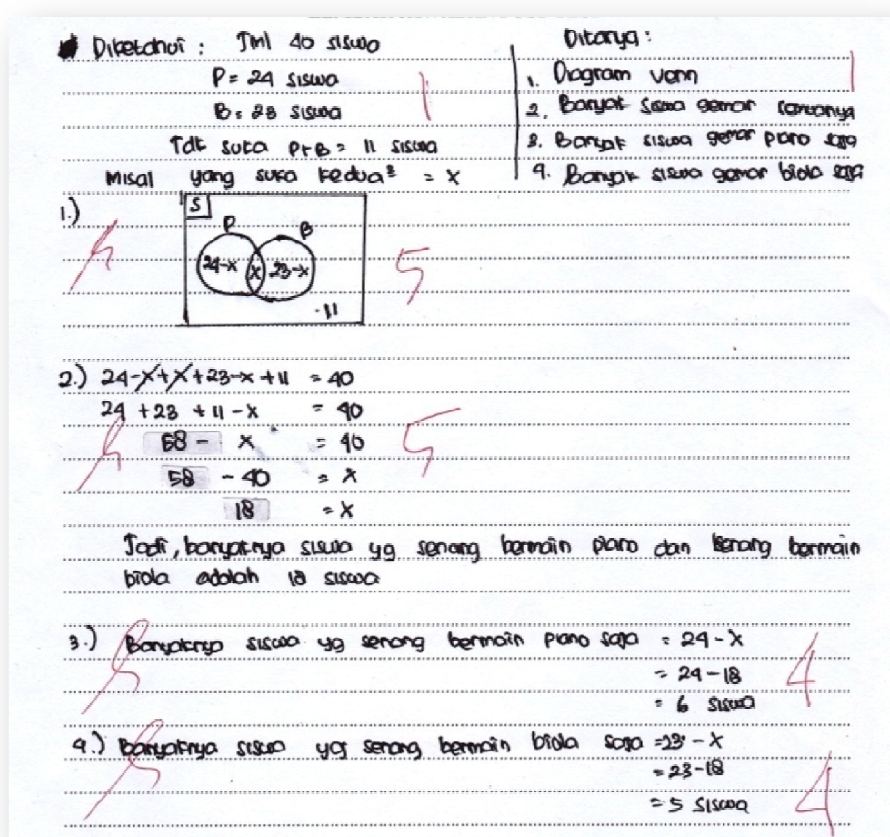 Diketahui : Jml 40 siswa
P = 24 siswa
B = 23 siswa
Tdk suka P+B = 11 siswa
Misal yang suka kedua² = x
1
Ditanya :
1. Diagram venn
2. Banyak siswa gemar
3. Banyak siswa gemar piano saja
4. Banyak siswa gemar biola saja
1
1.)
S
P B
24-x x 23-x
.11
5
2.) 24-x+x+23-x+11 = 40
24 + 23 + 11 - x = 40
58 - x = 40
58 - 40 = x
18 = x
5
Jadi, banyaknya siswa yg senang bermain piano dan senang bermain
biola adalah 18 siswa
3.) Banyaknya siswa yg senang bermain piano saja = 24 - x
= 24 - 18
= 6 siswa
4
4.) Banyaknya siswa yg senang bermain biola saja = 23 - x
= 23 - 18
= 5 siswa
4